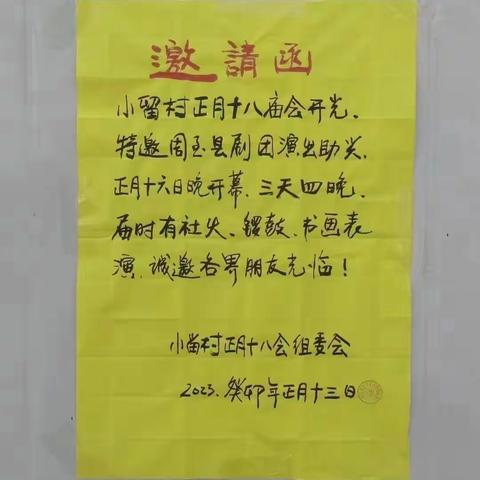 邀請函
小留村正月十八庙会开光、
特邀周至县剧团演出助兴、
正月十六日晚开幕、三天四晚、
届时有社火、锣鼓、书画表
演、诚邀各界朋友光临！
小留村正月十八会组委会
2023.癸卯年正月十三日